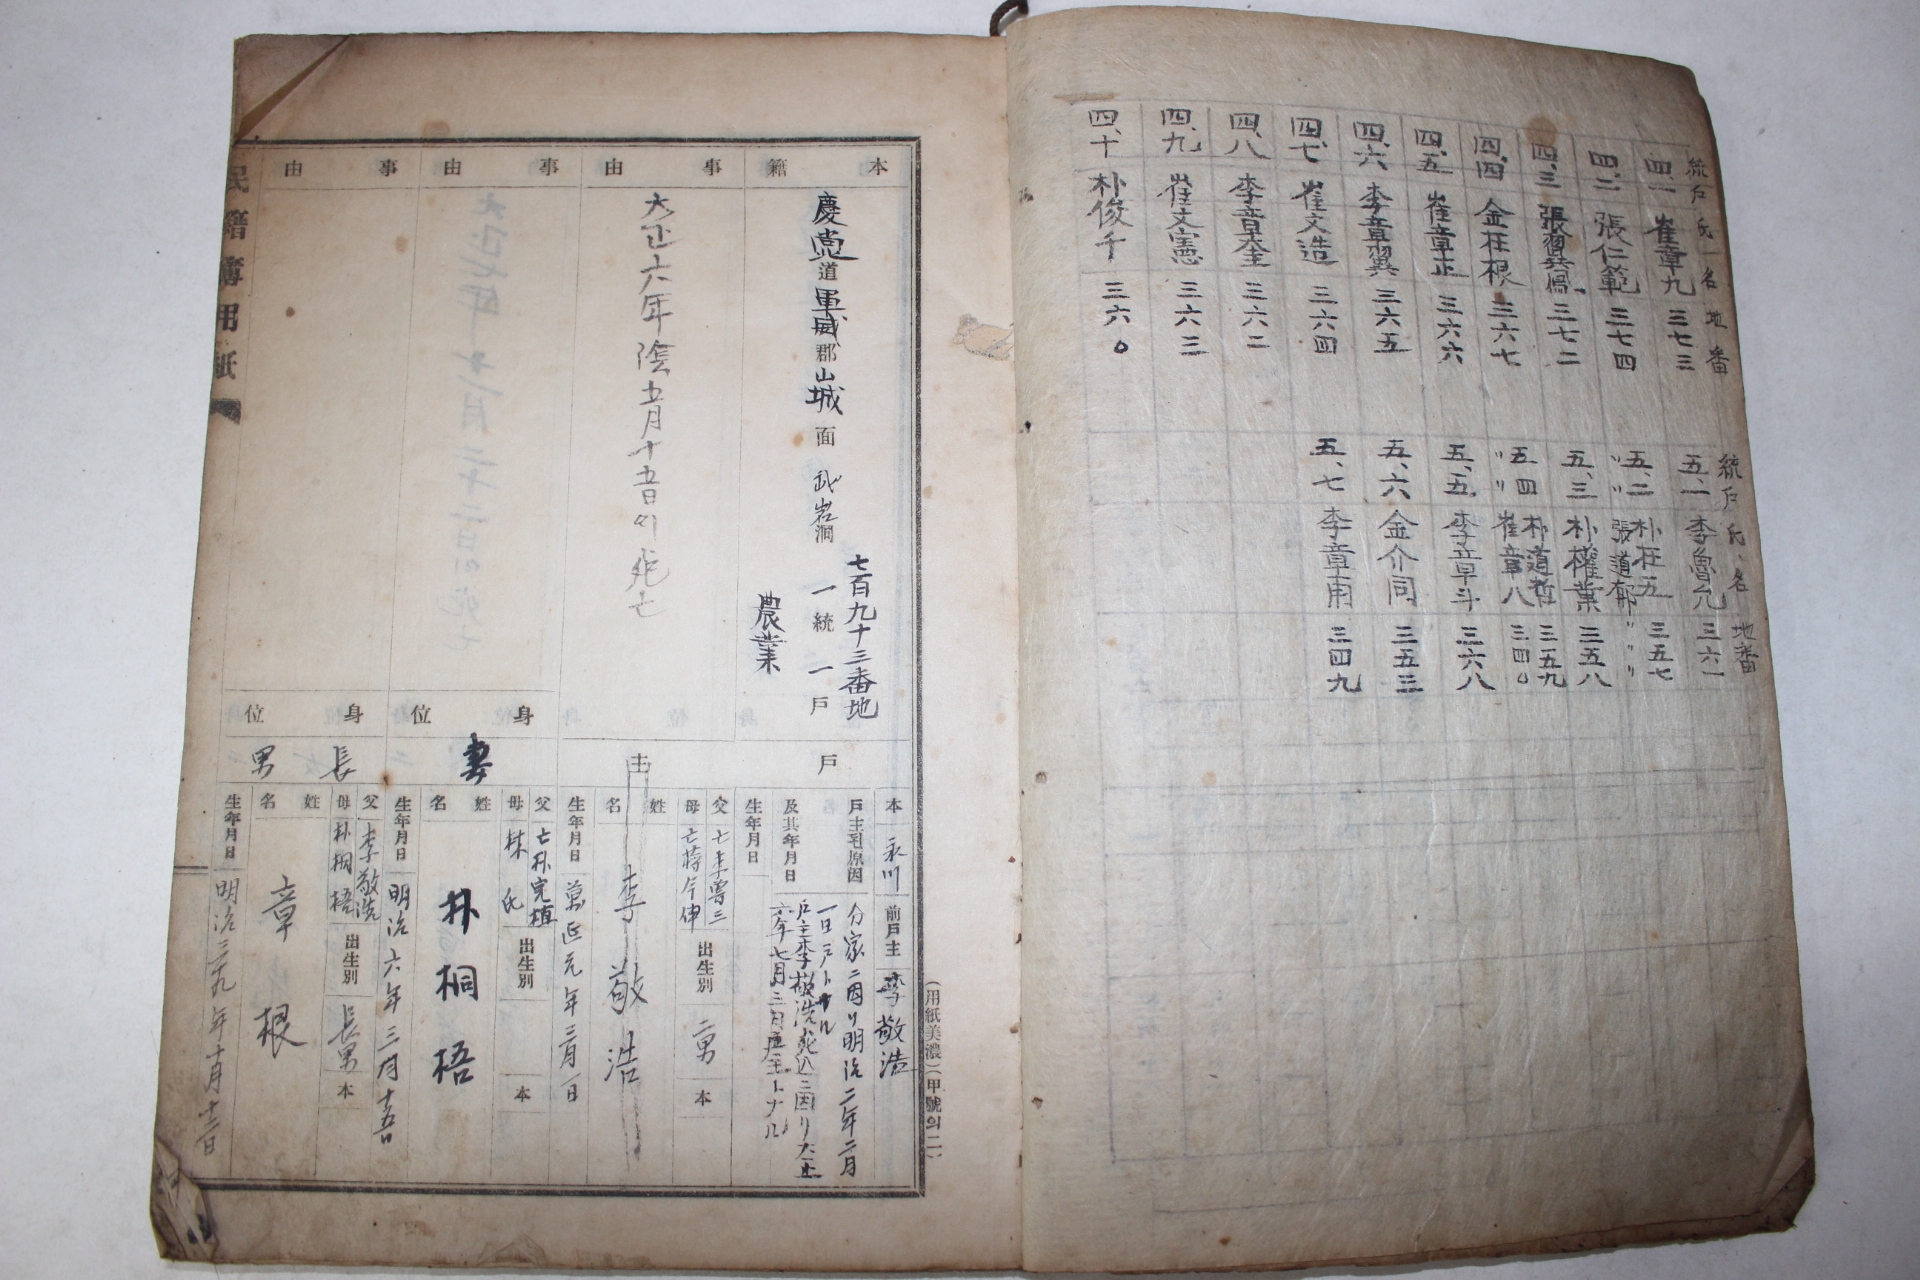 統戶氏名地番
四、一 崔章九 三七三
四、二 張仁範 三七四
四、三 張翼鳳 三七二
四、四 金在根 三六七
四、五 崔章正 三六六
四、六 李章翼 三六五
四、七 崔文造 三六四
四、八 李章奎 三六二
四、九 崔文憲 三六三
四、十 朴俊千 三六〇
統戶氏、名 地番
五、一 李魯允 三六一
五、二 朴在五 三五七
〃〃 張道郁 〃〃〃
五、三 朴權業 三五八
五、四 朴道哲 三五九
〃〃 崔章八 三四〇
五、五 李章斗 三六八
五、六 金介同 三五三
五、七 李章甫 三四九
(用紙美濃)(甲號의二)
本籍
慶尙道軍威郡山城面武岩洞
七百九十三番地
一統一戶
農業
事由
大正六年陰五月十五日에死亡
事由
事由
民籍簿用紙
戶主
本 永川
前戶主 李敬浩
戶主된原因
及其年月日
分家ニ因リ明治二年二月
一日戶トナル
戶主李敬浩死亡ニ因リ大正
六年七月三日戶主トナル
生年月日
父 亡李曾三
母 亡蔣今伸
出生別 二男
本
姓名 李敬浩
生年月日 萬延元年三月一日
身位 妻
父 亡朴完植
母 林氏
出生別
本
姓名 朴桐梧
生年月日 明治六年三月十五日
身位 長男
父 李敬浩
母 朴桐梧
出生別 長男
本
姓名 章根
生年月日 明治三十九年十月十三日